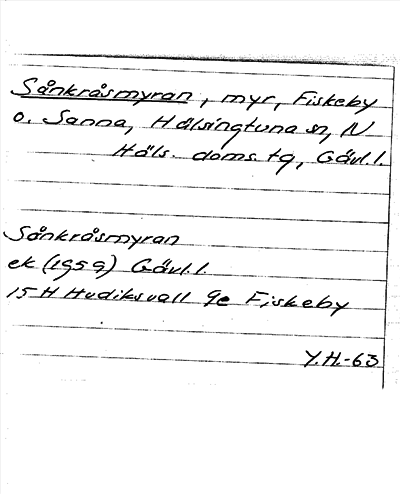 Sånkråsmyran, myr, Fiskeby
o. Sanna, Hälsingtuna sn, N
Häls. doms. tg, Gävl.l.
Sånkråsmyran
ek (1959) Gävl.l.
15H Hudiksvall 9e Fiskeby
Y.H.-63